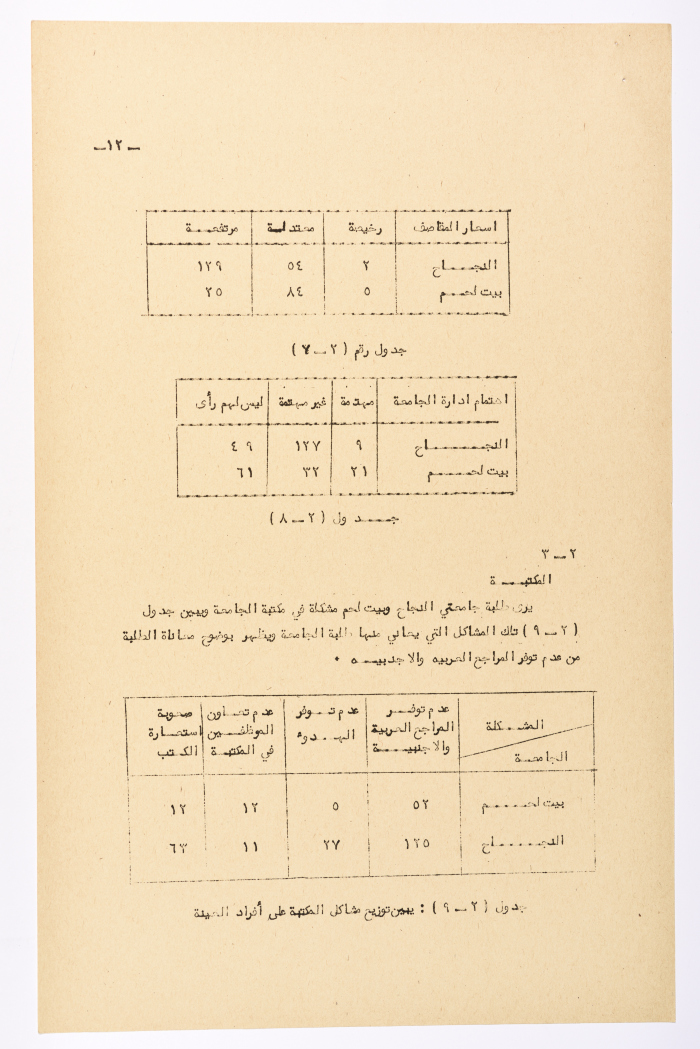 ـ ١٢ـ
اسعار المقاصف رخيصة معتدلة مرتفعة
النجاح ٢ ٥٤ ١٢٩
بيت لحم ٥ ٨٤ ٢٥
جدول رقم ( ٢ ـ ٧ )
اهتمام ادارة الجامعة مهتمة غير مهتمة ليس لهم رأى
النجاح ٩ ١٢٧ ٤٩
بيت لحم ٢١ ٣٢ ٦١
جدول ( ٢ ـ ٨ )
٢ ـ ٣
المكتبة
يرى طلبة جامعتي النجاح وبيت لحم مشكلة في مكتبة الجامعة ويبين جدول
( ٢ ـ ٩ ) تلك المشاكل التي يعاني منها طلبة الجامعة ويظهر بوضوح معاناة الطلبة
من عدم توفر المراجع العربيه والاجنبيه ٠
المشكلة عدم توفر عدم توفر عدم تعاون صعوبة
المراجع العربية الهدوء الموظفين استعارة
الجامعة والاجنبية في المكتبة الكتب
بيت لحم ٥٢ ٥ ١٢ ١٢
النجاح ١٢٥ ٢٧ ١١ ٦٣
جدول ( ٢ ـ ٩ ) : يبين توزيع مشاكل المكتبة على أفراد العينة